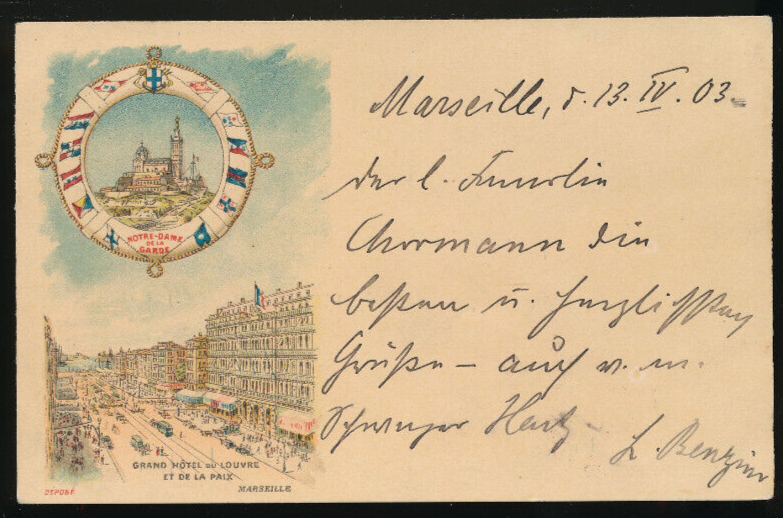 NOTRE-DAME
DE LA
GARDE
GRAND HÔTEL DU LOUVRE
ET DE LA PAIX
MARSEILLE
DEPOSE
Marseille, d. 13. IV. 03.
der l. Familie
Chormann die
besten u. herzlichsten
Grüße – auch v. m.
Schwager